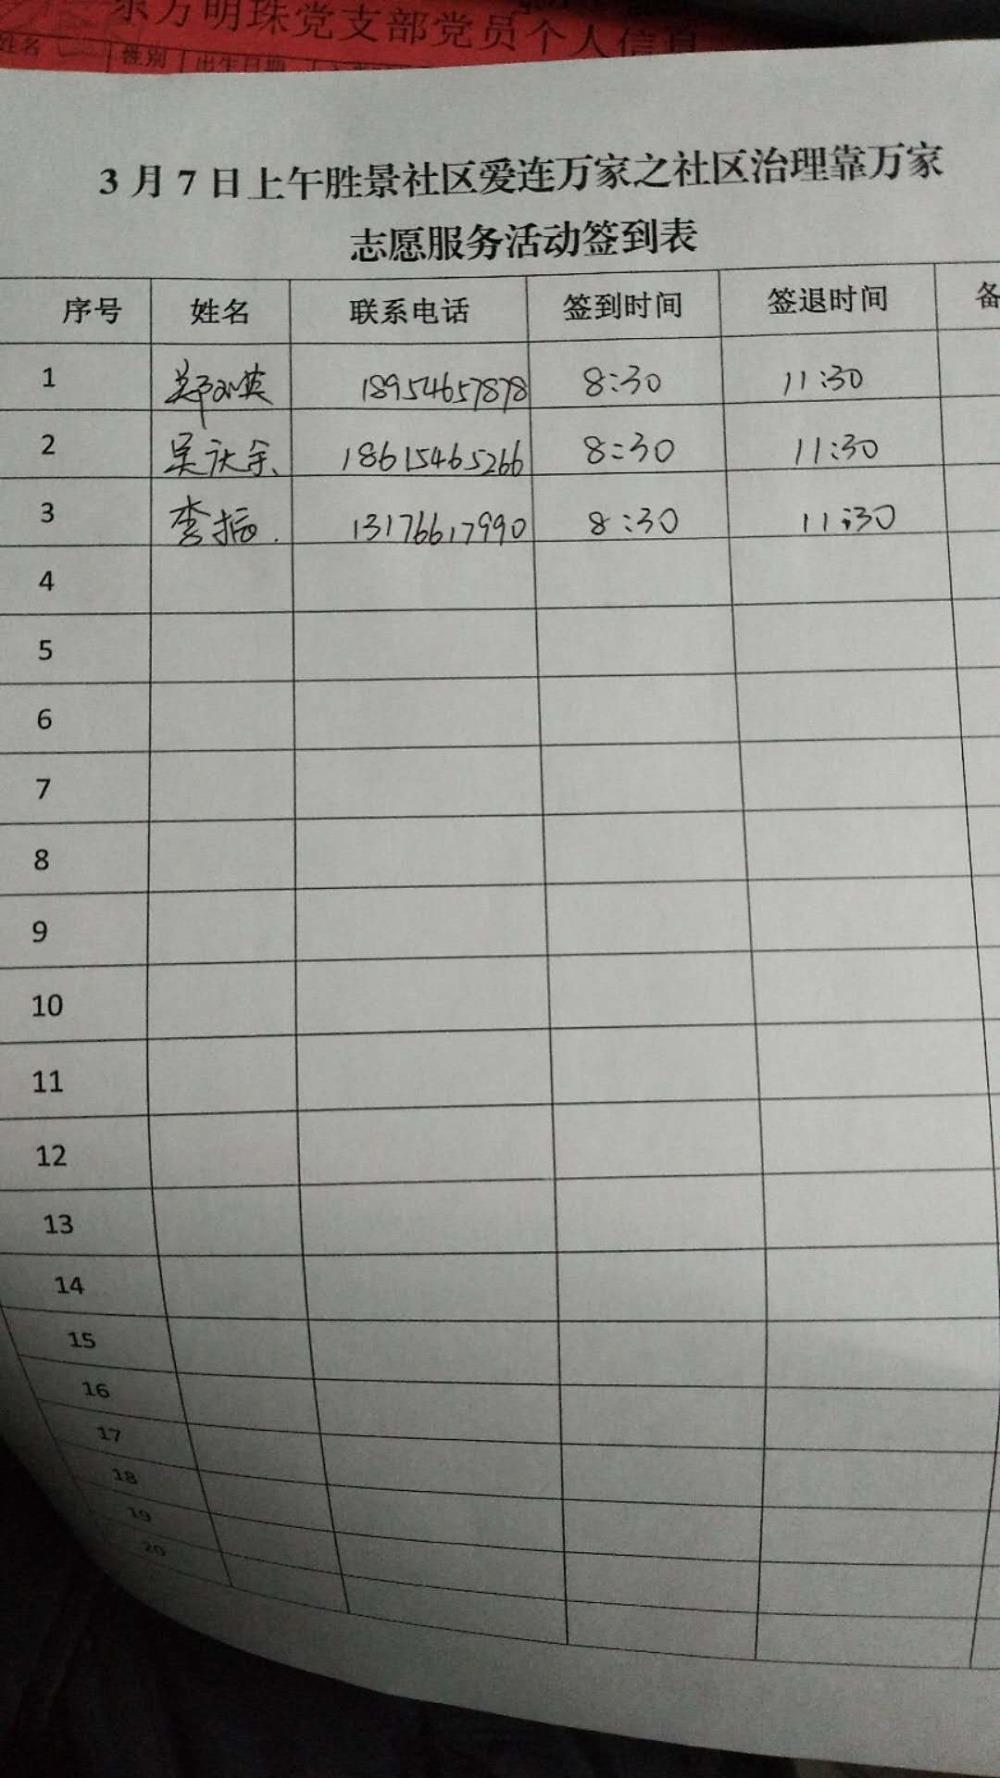 东方明珠党支部党员个人信息
姓名 性别 出生日期
3月7日上午胜景社区爱连万家之社区治理靠万家
志愿服务活动签到表
序号 姓名 联系电话 签到时间 签退时间 备
1 18954657878 8:30 11:30
2 吴庆余 18615465266 8:30 11:30
3 李振 13176617990 8:30 11:30
4
5
6
7
8
9
10
11
12
13
14
15
16
17
18
19
20